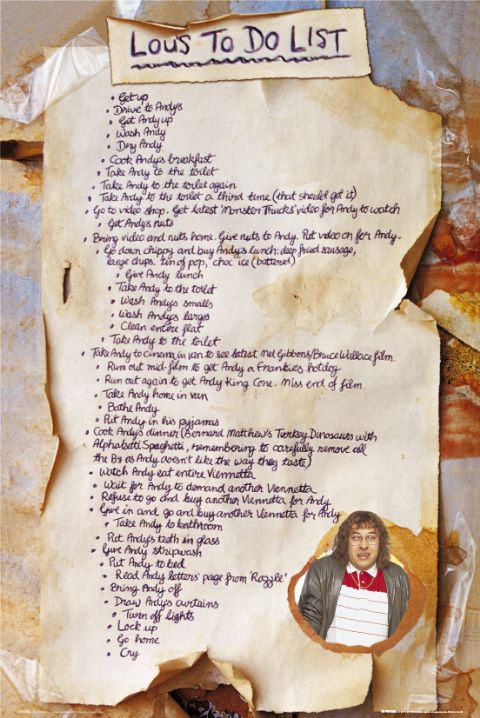 LOU'S TO DO LIST
• Get up
• Drive to Andy's
• Get Andy up
• Wash Andy
• Dry Andy
• Cook Andy's breakfast
• Take Andy to the toilet
• Take Andy to the toilet again
• Take Andy to the toilet a third time (that should get it)
• Go to video shop. Get latest 'Monster Trucks' video for Andy to watch
• Get Andy's nuts
• Bring video and nuts home. Give nuts to Andy. Put video on for Andy.
• Go down chippy and buy Andy's lunch: deep fried sausage,
large chips, tin of pop, choc ice (battered)
• Give Andy lunch
• Take Andy to the toilet
• Wash Andy's smalls
• Wash Andy's larges
• Clean entire flat
• Take Andy to the toilet
• Take Andy to cinema in van to see latest Mel Gibbons/Bruce Wallace film.
• Run out mid-film to get Andy a Frankies hotdog
• Run out again to get Andy King Cone. Miss end of film
• Take Andy home in van
• Bathe Andy
• Put Andy in his pyjamas
• Cook Andy's dinner (Bernard Matthew's Turkey Dinosaurs with
Alphabetti Spaghetti, remembering to carefully remove all
the Bs as Andy doesn't like the way they taste)
• Watch Andy eat entire Viennetta
• Wait for Andy to demand another Viennetta
• Refuse to go and buy another Viennetta for Andy
• Give in and go and buy another Viennetta for Andy
• Take Andy to bathroom
• Put Andy's teeth in glass
• Give Andy stripwash
• Put Andy to bed
• Read Andy letters' page from 'Razzle'
• Bring Andy off
• Draw Andy's curtains
• Turn off lights
• Lock up
• Go home
• Cry